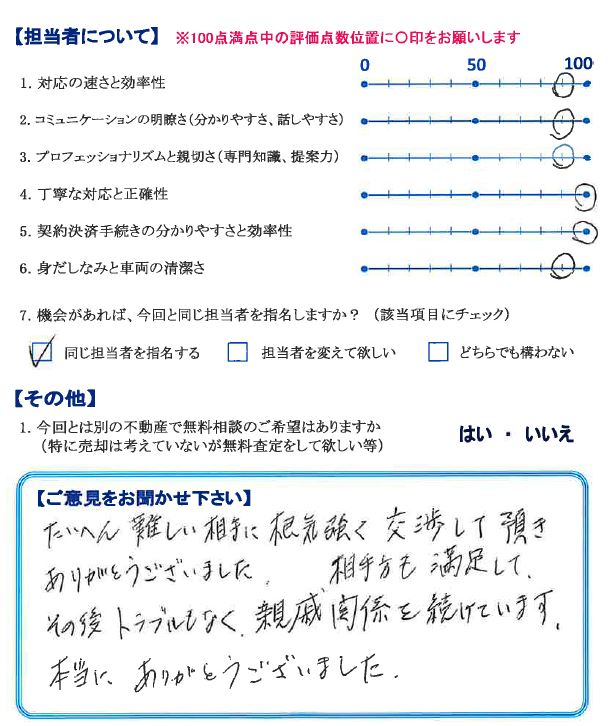 【担当者について】 ※100点満点中の評価点数位置に〇印をお願いします
0 50 100
1. 対応の速さと効率性
2. コミュニケーションの明瞭さ(分かりやすさ、話しやすさ)
3. プロフェッショナリズムと親切さ(専門知識、提案力)
4. 丁寧な対応と正確性
5. 契約決済手続きの分かりやすさと効率性
6. 身だしなみと車両の清潔さ
7. 機会があれば、今回と同じ担当者を指名しますか? (該当項目にチェック)
同じ担当者を指名する 担当者を変えて欲しい どちらでも構わない
【その他】
1. 今回とは別の不動産で無料相談のご希望はありますか
(特に売却は考えていないが無料査定をして欲しい等)
はい ・ いいえ
【ご意見をお聞かせ下さい】
たいへん 難しい 相手に 根気強く 交渉して 頂き
ありがとうございました。 相手方も 満足して、
その後 トラブルもなく、親戚関係を続けています。
本当に、ありがとうございました。